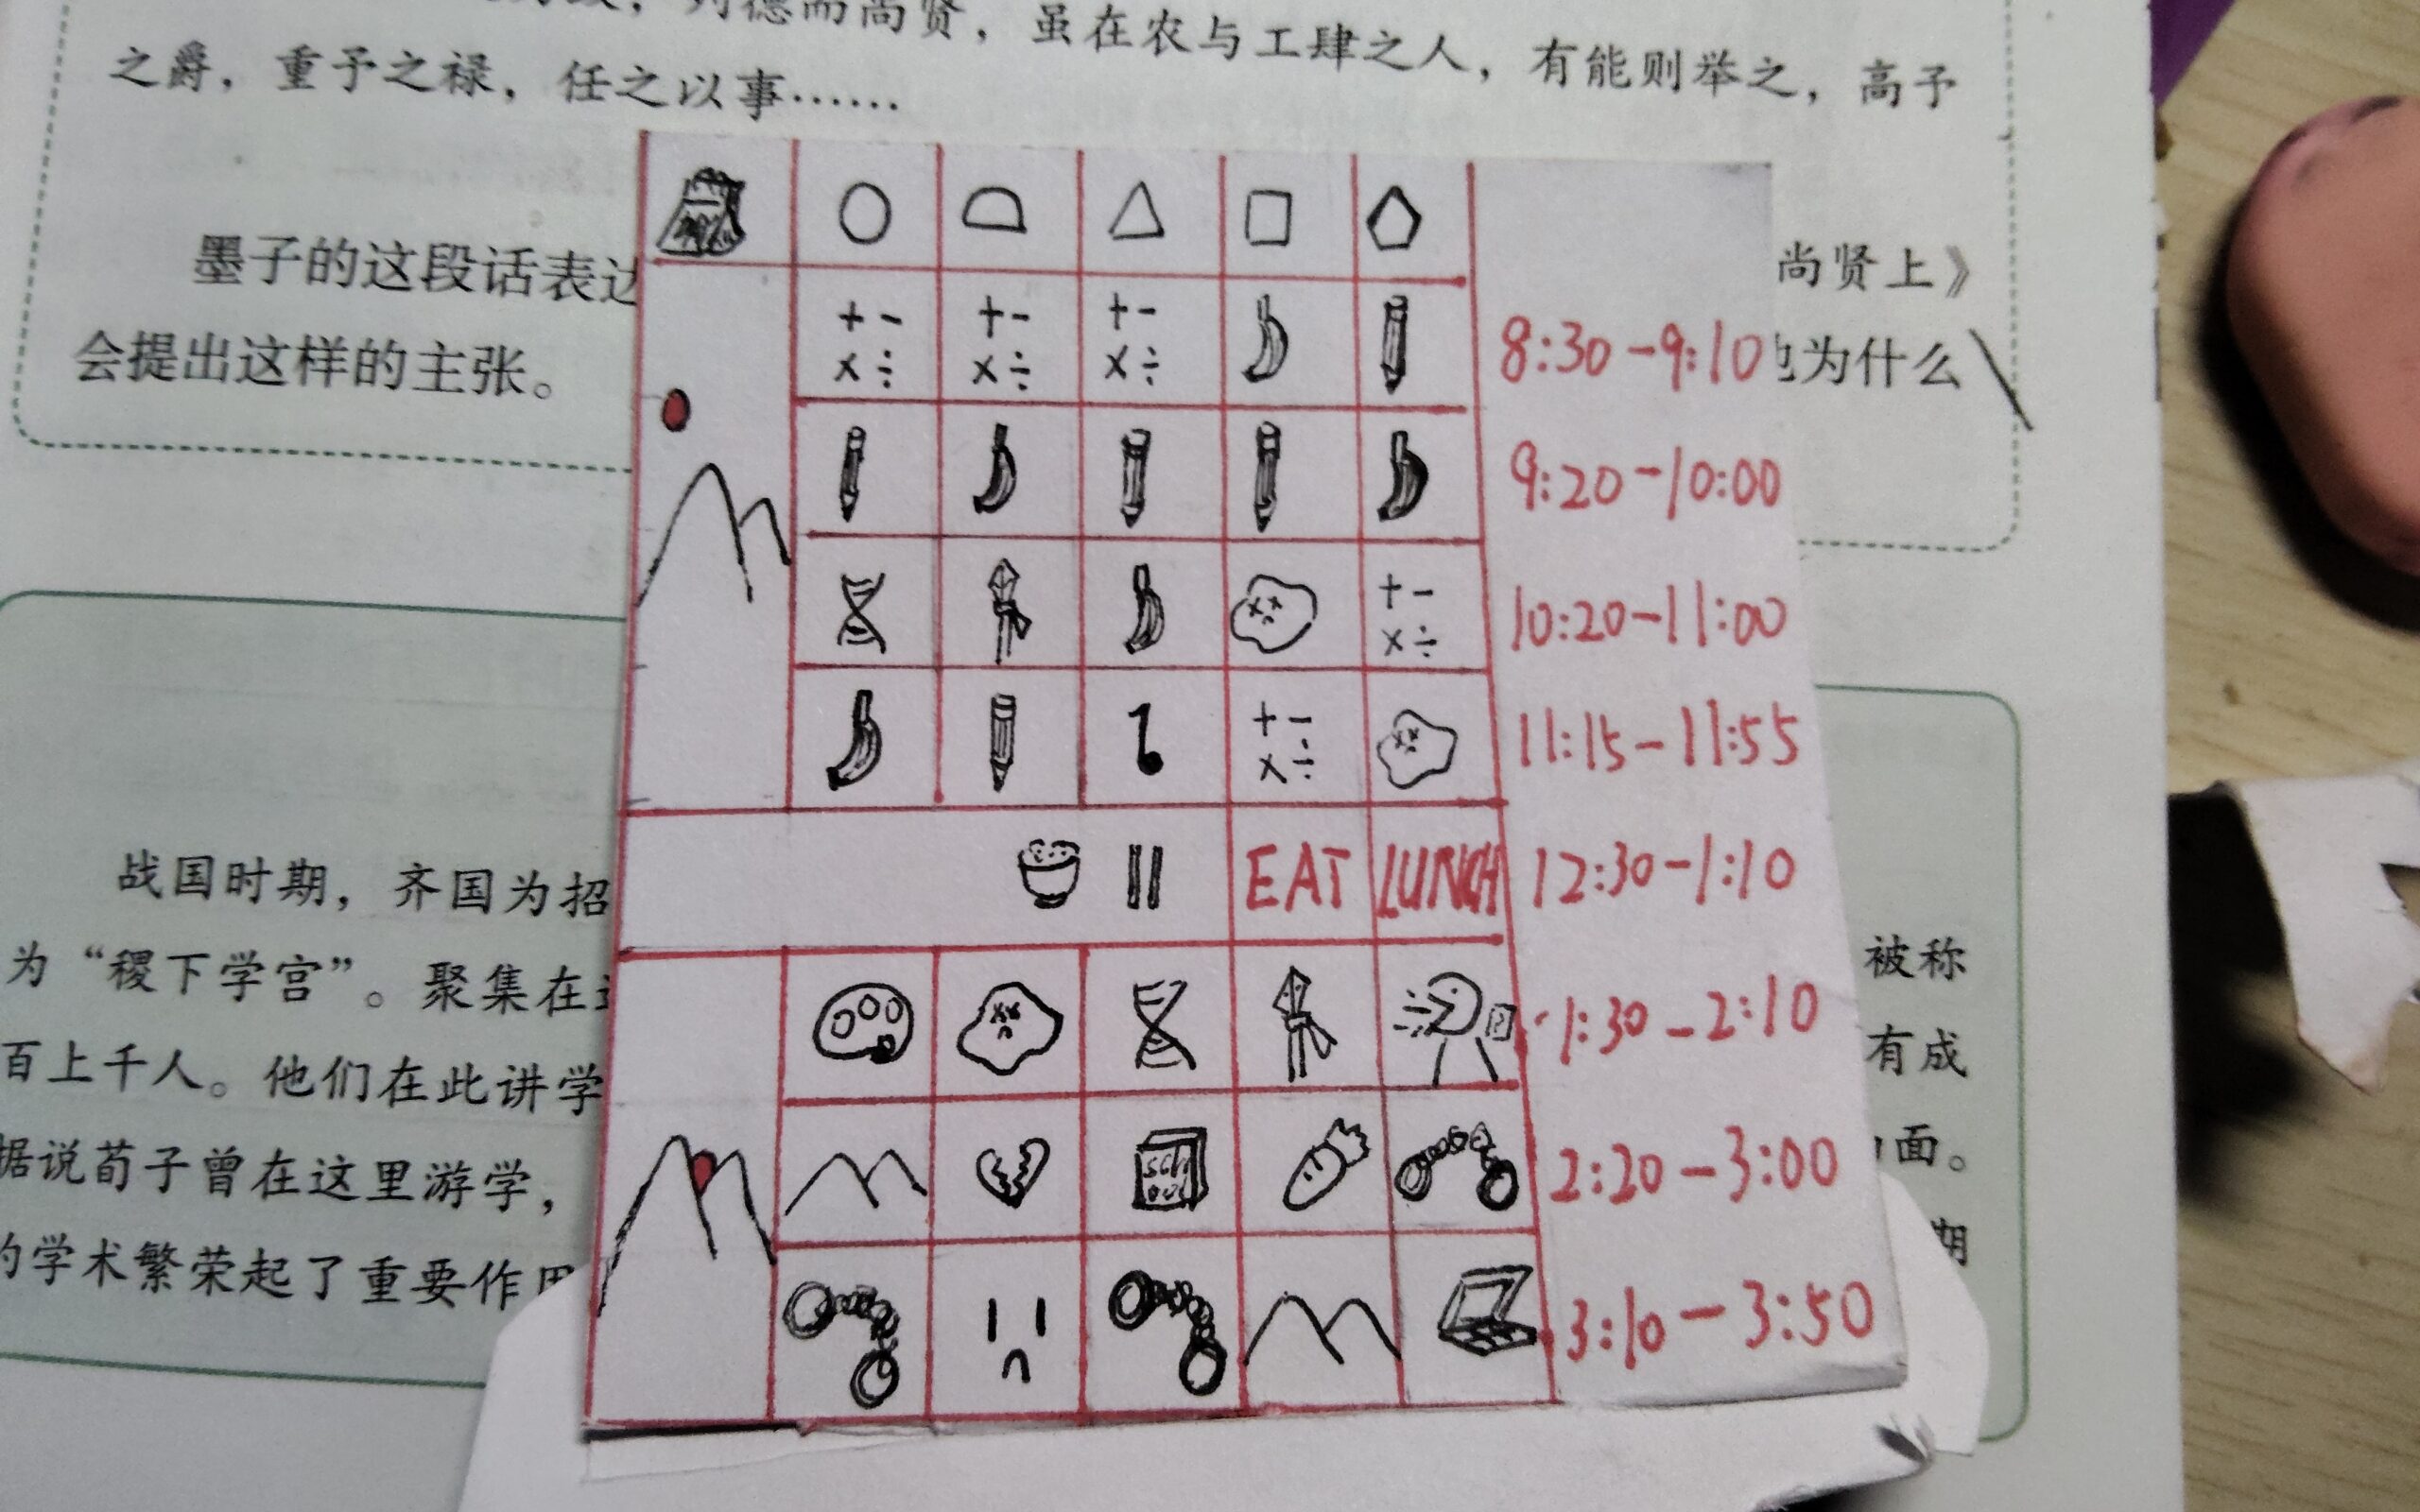 列德而尚贤，虽在农与工肆之人，有能则举之，高予
之爵，重予之禄，任之以事……
尚贤上》
墨子的这段话表达
为什么
会提出这样的主张。
+ - + - + -
× ÷ × ÷ × ÷
8:30-9:10
9:20-10:00
+ -
× ÷
10:20-11:00
+ -
× ÷
11:15-11:55
EAT LUNCH 12:30-1:10
1:30-2:10
2:20-3:00
3:10-3:50
战国时期，齐国为招
被称
为“稷下学宫”。聚集在
有成
百上千人。他们在此讲学
面。
据说荀子曾在这里游学，
期
的学术繁荣起了重要作用